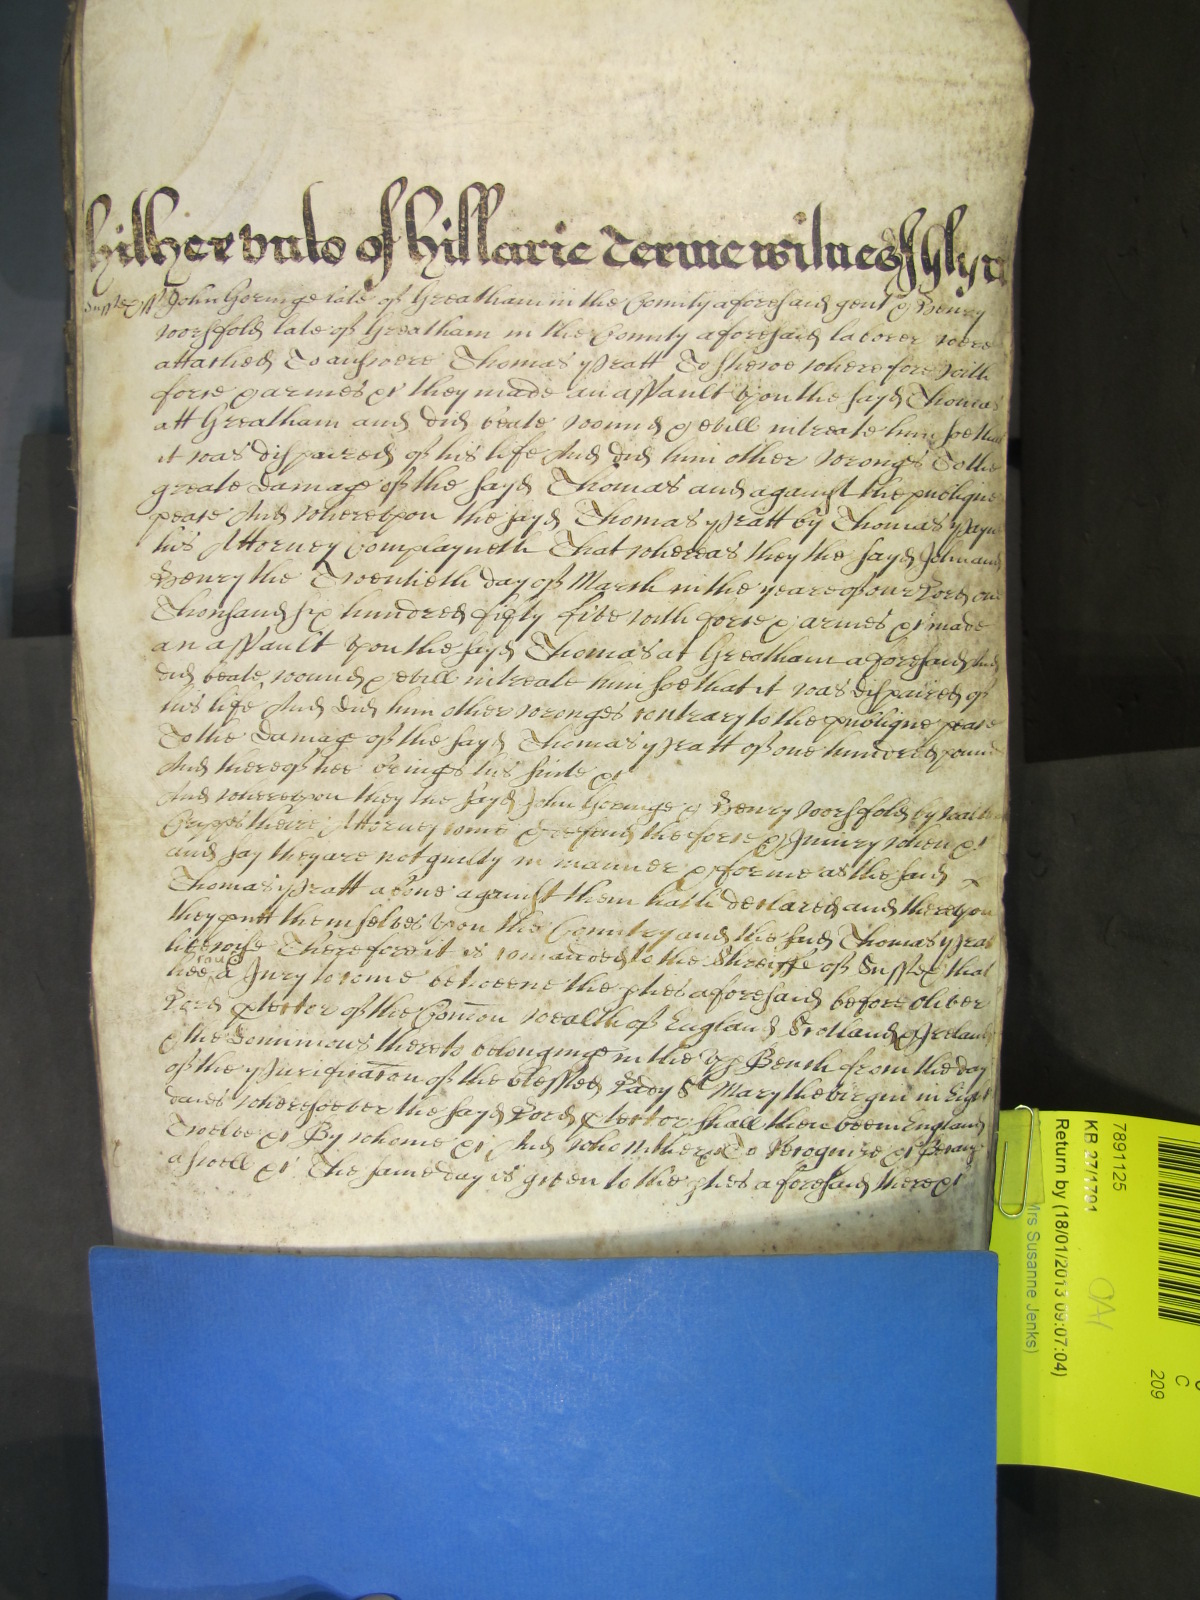 hitherunto of Hillarie Terme witnes
Sussex ss John Goringe late of Greatham in the County aforesaid gent & Henry
Worsfold late of Greatham in the County aforesaid laborer were
attached To answere Thomas Pratt To shewe wherefore with
force & armes &c they made an assault vpon the sayd Thomas
att Greatham and did beate wound & evill intreate him soe that
it was dispaired of his life And did him other wronges To the
greate damage of the sayd Thomas and against the publique
peace And wherevpon the sayd Thomas Pratt by Thomas
his Attorney Complayneth That whereas they the sayd John and
Henry the Twentieth day of March in the yeare of our Lord one
Thousand six hundred fifty five with force & armes &c made
an assault vpon the sayd Thomas at Greatham aforesaid And
did beate, wound & evill intreate him soe that it was dispaired of
his life And did him other wronges contrary to the publique peace
To the damage of the sayd Thomas Pratt of one hundred pound
And thereof hee bringes his suite &c
And wherevpon they the sayd John Goringe & Henry Worsfold by
theire Attorney come & defend the force & Iniury when &c
and say they are not guilty in manner & forme as the said
Thomas Pratt aboue against them hath declared and therevpon
they putt themselves vpon the Country and the said Thomas Pratt
likewise Therefore it is comanded to the Shreiffe of Sussex that
hee cause a Jury to come betweene the pties aforesaid before Oliver
Lord ptector of the Comon wealth of England Scotland & Ireland
& the Dominions thereto belonginge in the vpp Bench from the day
of the Purificacon of the blessed Lady St Mary the virgin in Eight
daies wheresoever the sayd Lord ptector shall then bee in England
Twelve &c By whome &c And who neither &c To Recognize &c Because
aswell &c The same day is given to the pties aforesaid there &c
7891125
KB 27/1791
Return by (18/01/2013 09:07:04)
Mrs Susanne Jenks)
C
209